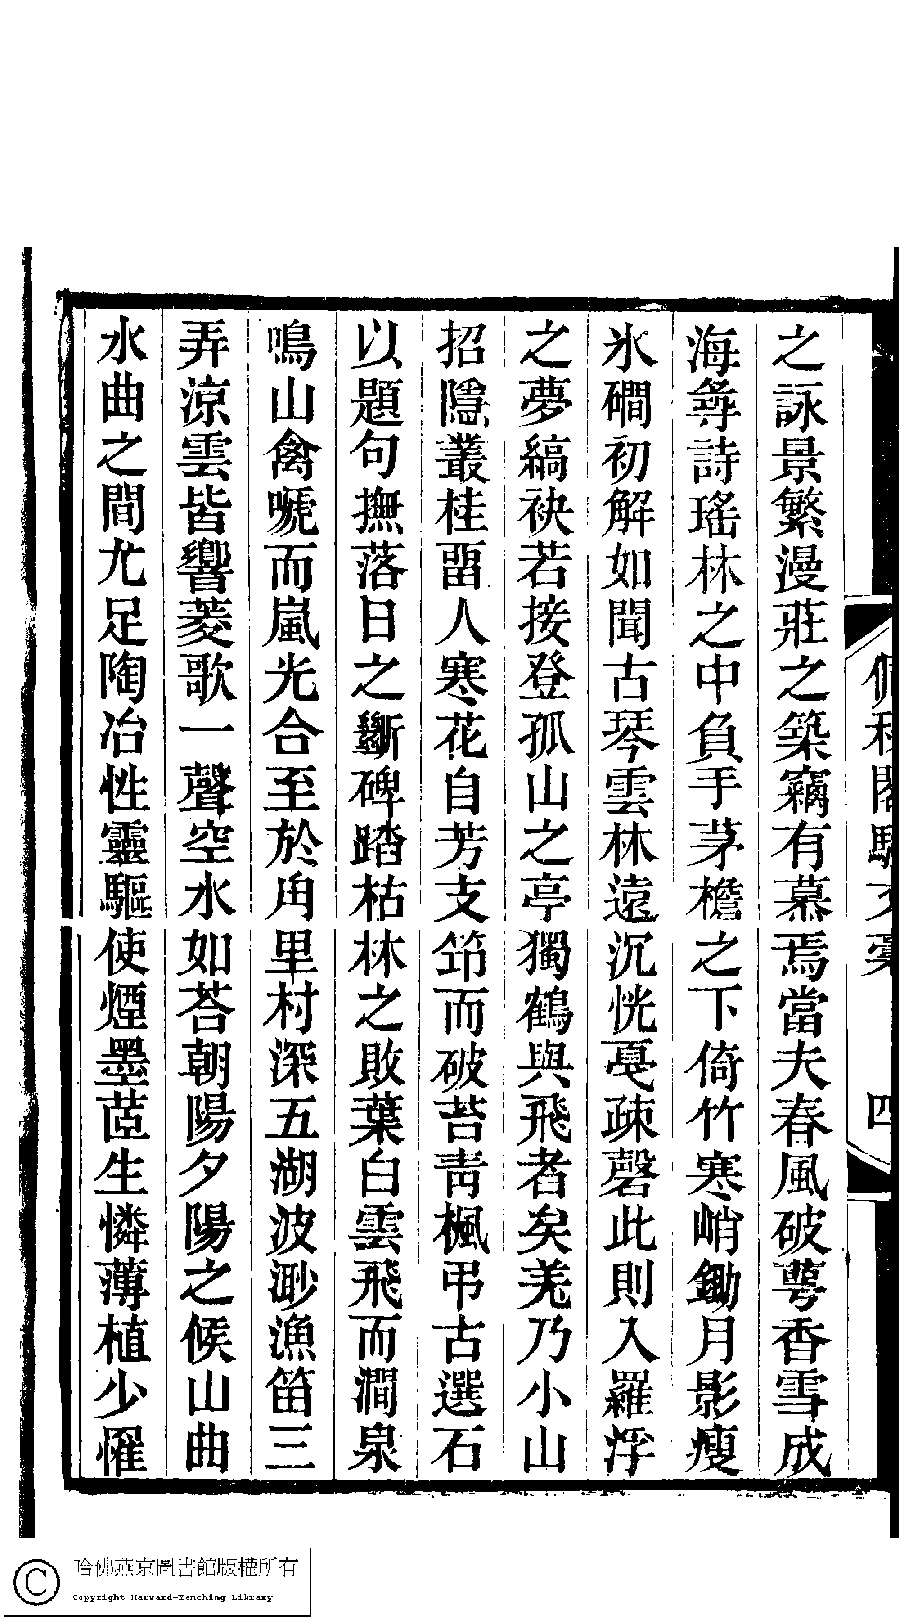 之詠景繁漫莊之築竊有慕焉當夫春風破萼香雪成
海尋詩瑤林之中負手茅檐之下倚竹寒峭鋤月影瘦
氷磵初解如聞古琴雲林遠沉恍戛疎磬此則入羅浮
之夢縞袂若接登孤山之亭獨鶴與飛者矣羗乃小山
招隱叢桂畱人寒花自芳支筇而破苔靑楓弔古選石
以題句撫落日之斷碑踏枯林之敗葉白雲飛而澗泉
鳴山禽嗁而嵐光合至於甪里村深五湖波渺漁笛三
弄涼雲皆響菱歌一聲空水如荅朝陽夕陽之候山曲
水曲之間尤足陶冶性靈驅使煙墨茝生憐薄植少懼
四
哈佛燕京圖書館版權所有
Copyright Harvard-Yenching Library